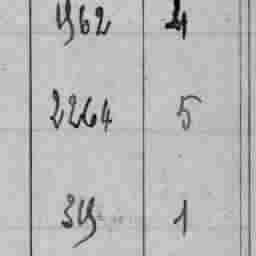 1962 4
2264 5
319 1